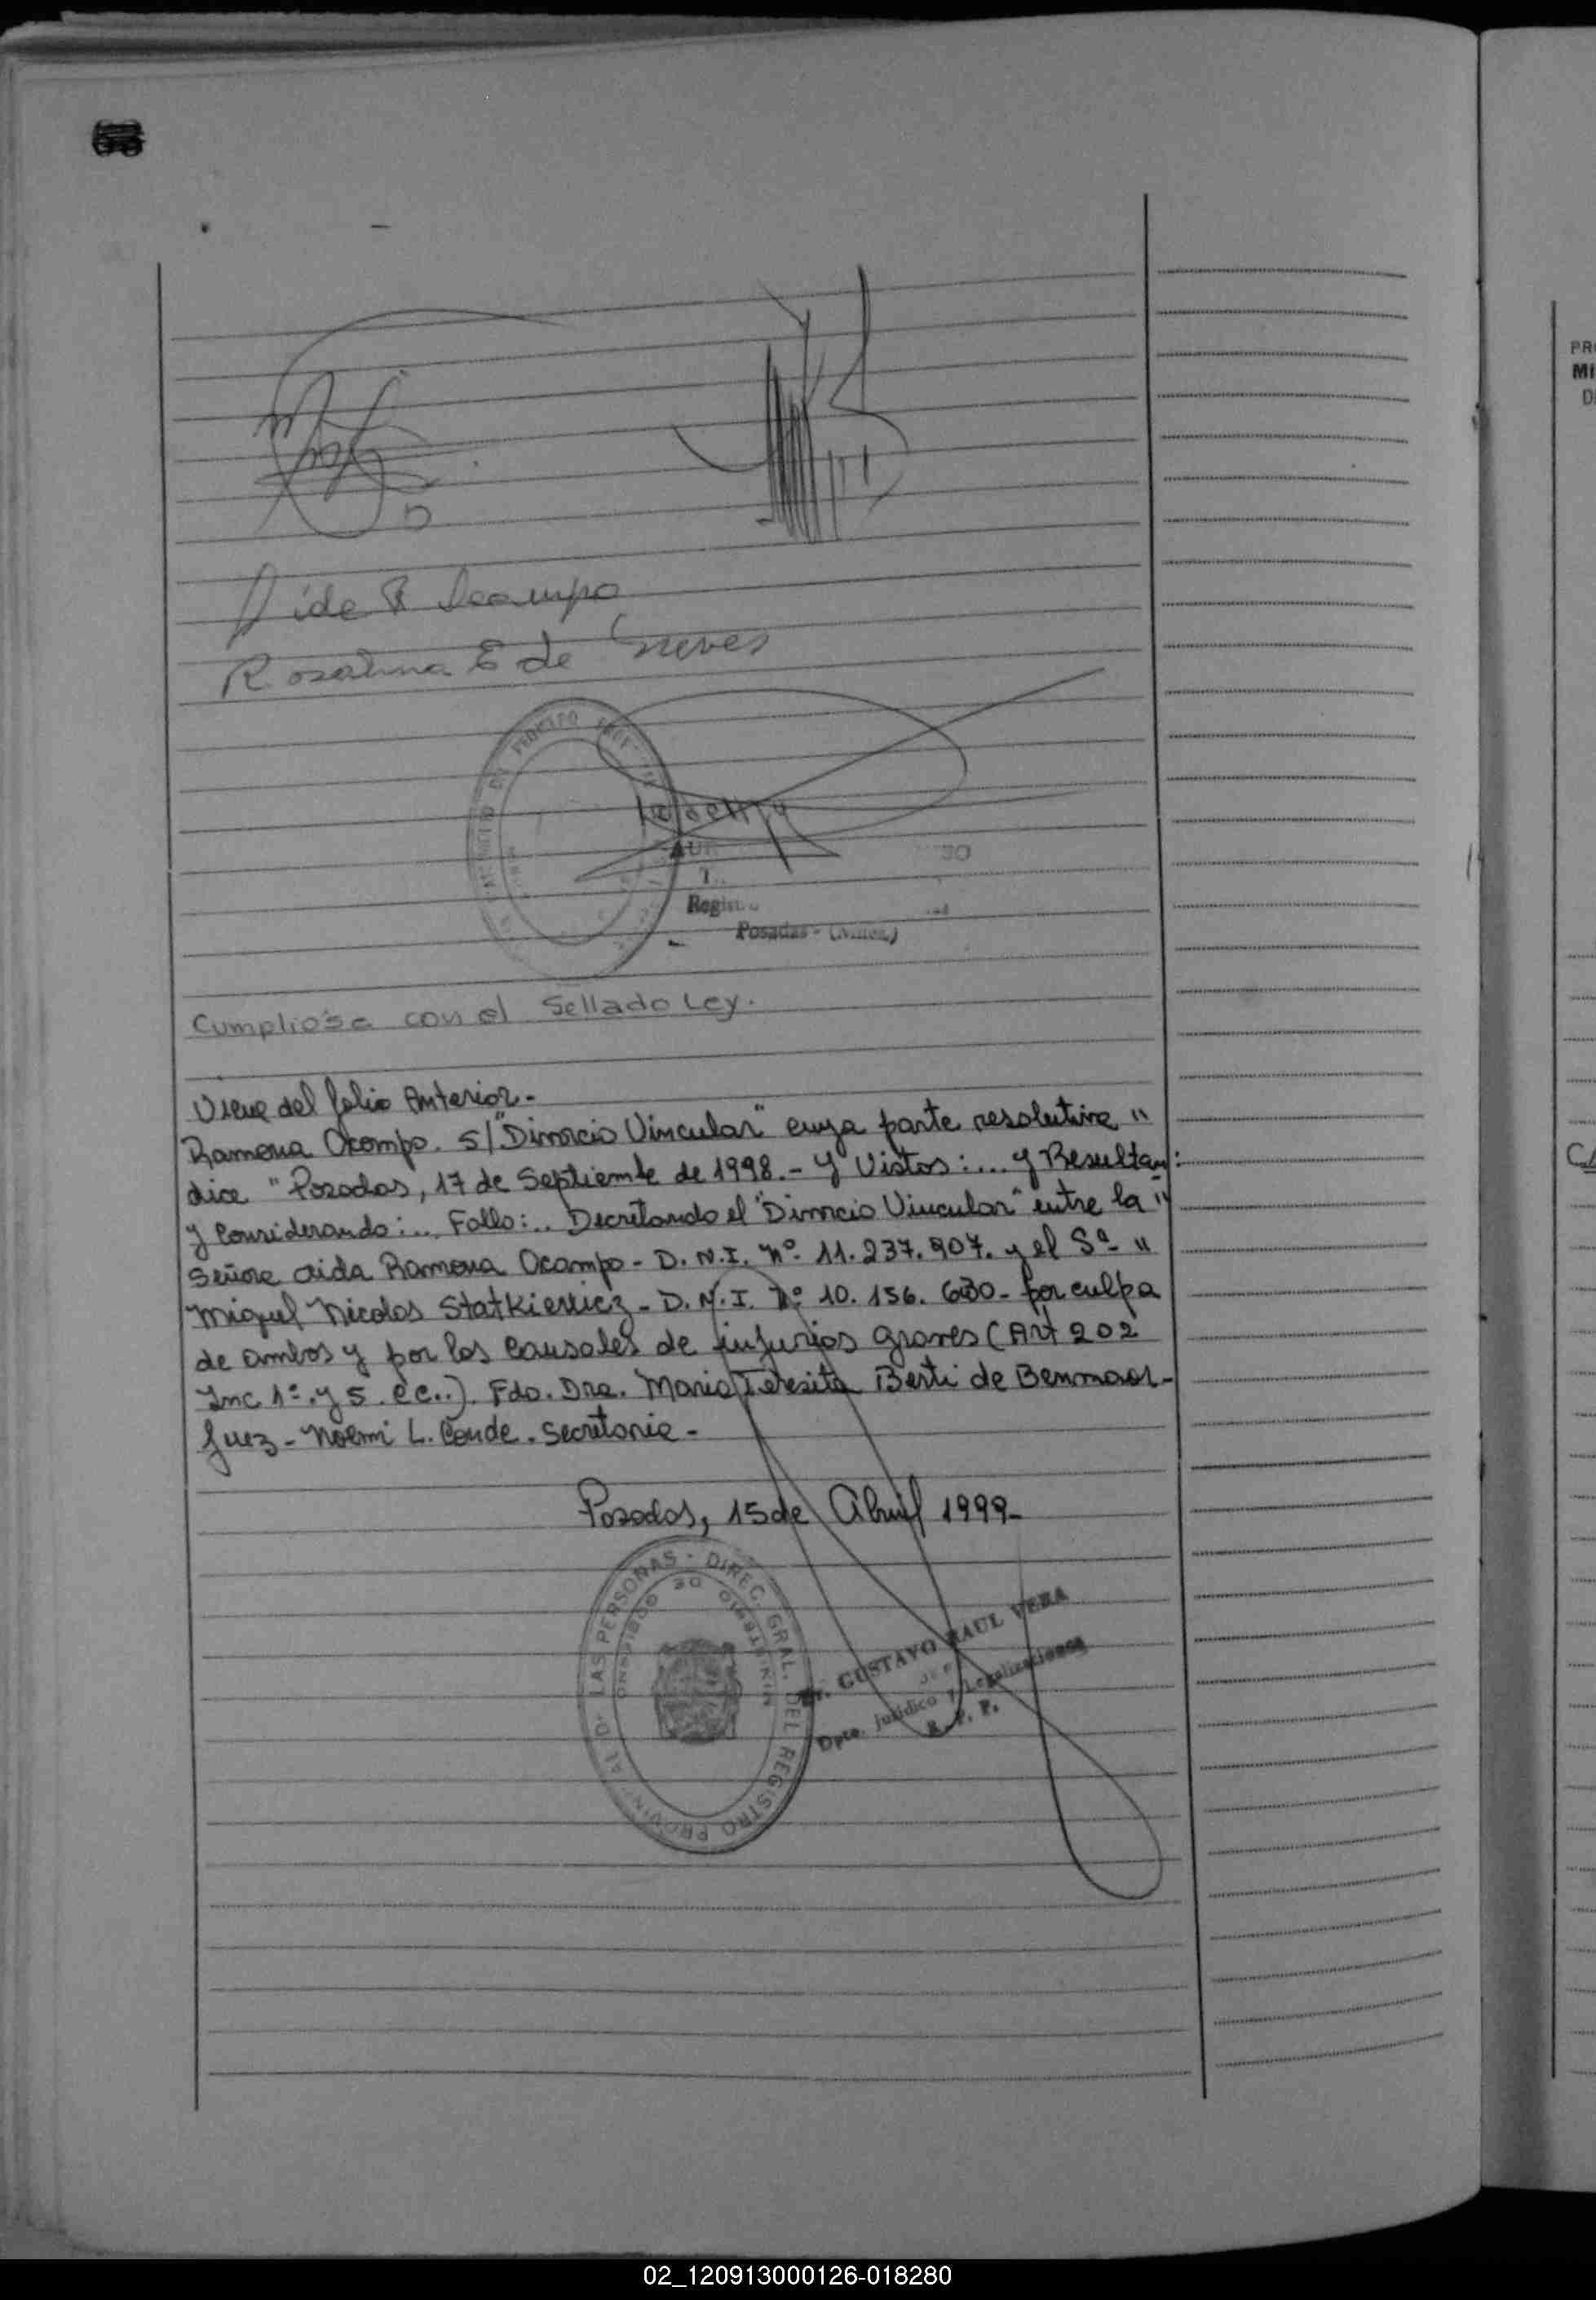 Aida R Ocampo
Rosalina E de Nieves
Regist
Posadas - (Mnes.)
Cumplióse con el Sellado Ley.
Viene del folio Anterior.-
Ramona Ocampo. S/"Divorcio Vincular" cuya parte resolutiva "
dice "Posadas, 17 de Septiembre de 1998.- Y Vistos:... y Resultan:
y Considerando:... Fallo:.. Decretando el "Divorcio Vincular" entre la "
Señora Aida Ramona Ocampo - D.N.I. Nº 11.237.907. y el Sº "
Miguel Nicolas Statkievicz - D.N.I. Nº 10.156.630 - por culpa
de ambos y por las causales de injurias graves (Art 202
Inc 1º. y 5. cc..). Fdo. Dra. Maria Teresita Berti de Benmaor-
Juez - Noemi L. Conde. Secretaria -
Posadas, 15 de Abril 1999-
LAS PERSONAS - DIREC. GRAL. DEL REGISTRO
MINISTERIO DE GOBIERNO
Dr. GUSTAVO RAUL VERA
Dpto. Jurídico y Legalizaciones
R. P. P.
PR
MI
D
02_120913000126-018280